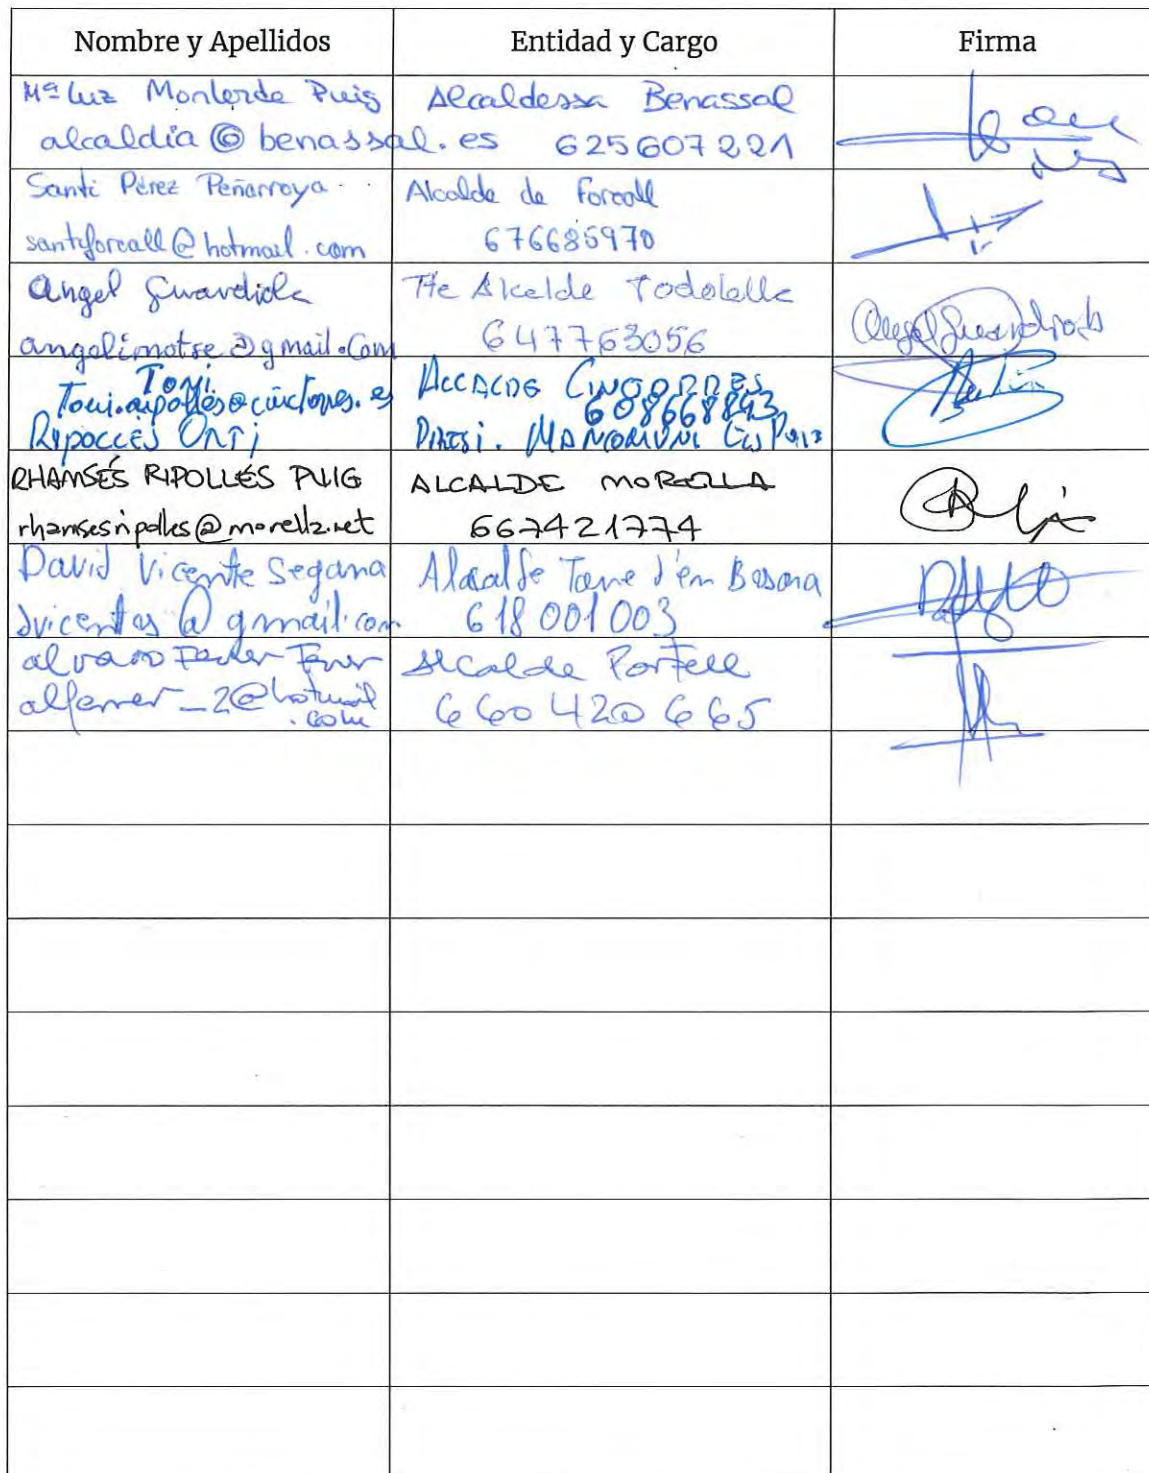 Nombre y Apellidos
Entidad y Cargo
Firma
Mª Luz Monlerde Puig
alcaldia@benassal.es
Alcaldessa Benassal
625607221
Santi Pérez Peñarroya
santiforcall@hotmail.com
Alcalde de Forcall
676685970
Angel Guardiola
angelimotse@gmail.com
Tte Alcalde Todolella
647763056
Angel Guardiola
Toni
Ripollés Ortí
Alcalde Cinctorres
608668843
Presi. Mancomuni Els Ports
RHAMSÉS RIPOLLÉS PUIG
rhamsesripolles@morella.net
ALCALDE MORELLA
667421774
David Vicente Segarra
dvicentes@gmail.com
Alcalde Torre d'en Besora
618001003
alvaro Ferrer
alferrer_2@hotmail
.com
Alcalde Portell
660420665